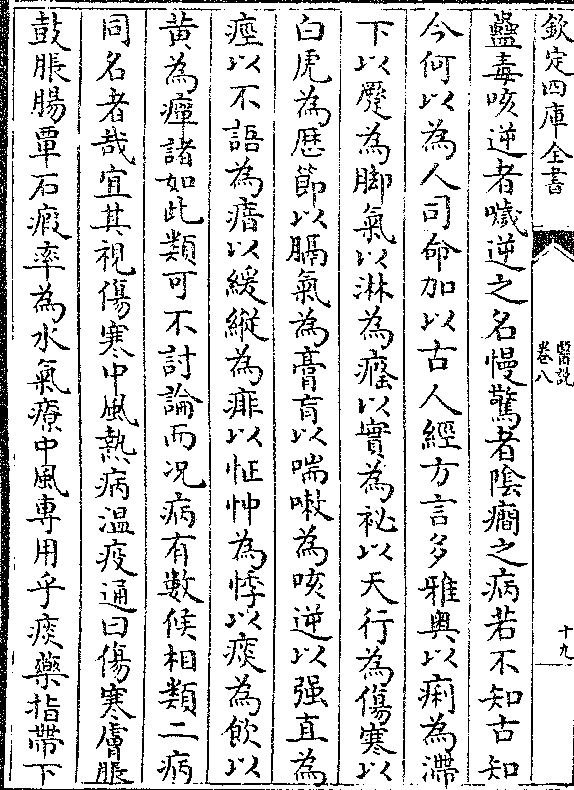 欽定四庫全書
醫說
卷八
十九
蠱毒咳逆者噦逆之名慢驚者陰癇之病若不知古知
今何以為人司命加以古人經方言多雅奧以痢為滯
下以蹷為脚氣以淋為癃以實為祕以天行為傷寒以
白虎為歴節以膈氣為膏肓以喘嗽為咳逆以强直為
痙以不語為瘖以緩縱為痱以怔忡為悸以痰為飲以
黄為癉諸如此類可不討論而況病有數候相類二病
同名者哉宜其視傷寒中風熱病溫疫通曰傷寒膚脹
鼓脹腸覃石瘕率為水氣療中風專用乎痰藥指帶下